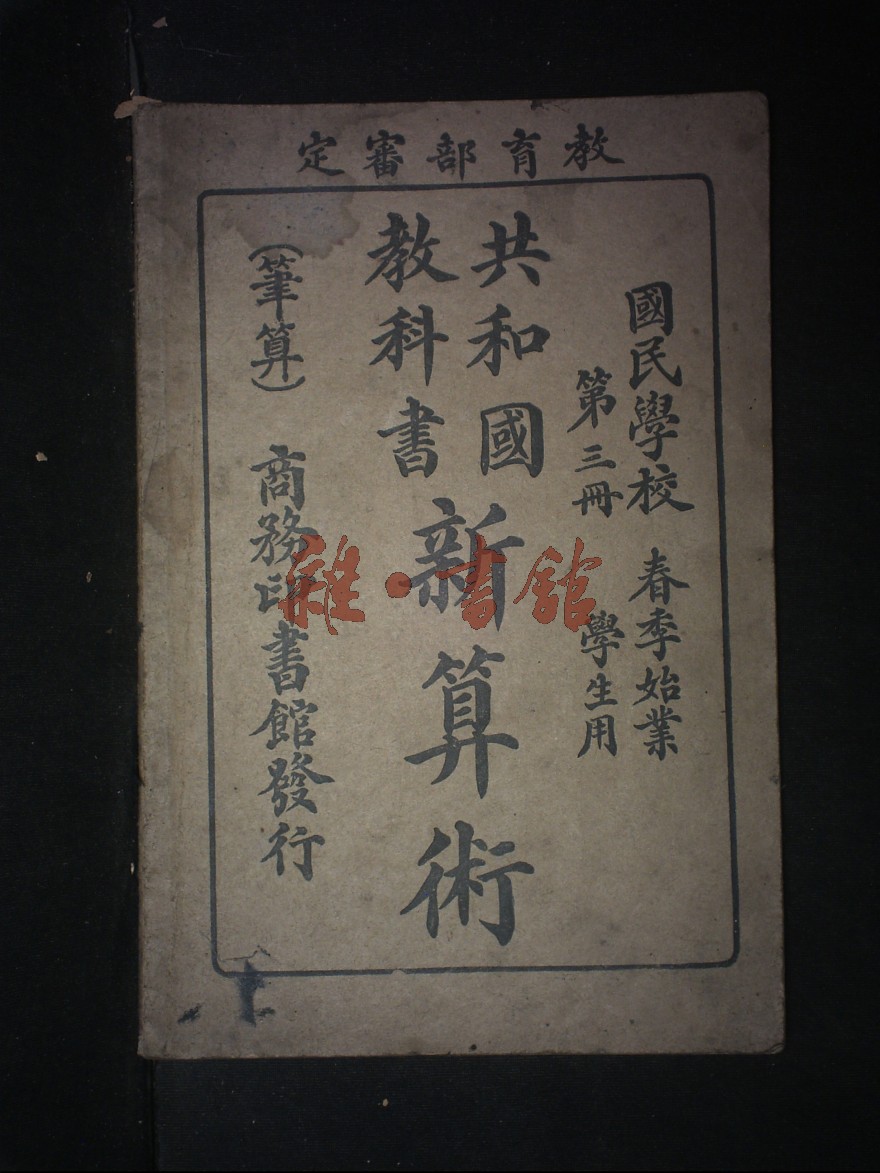 教育部審定
國民學校 春季始業
第三冊 學生用
共和國
教科書
新算術
（筆算） 商務印書館發行
雜·書館